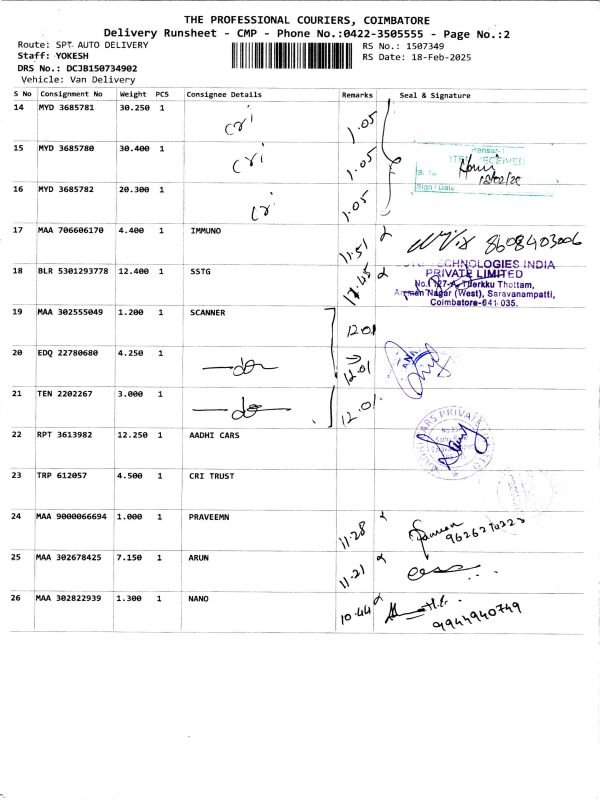 THE PROFESSIONAL COURIERS, COIMBATORE
Delivery Runsheet - CMP - Phone No.:0422-3505555 - Page No.:2
Route: SPT AUTO DELIVERY
RS No.: 1507349
Staff: YOKESH
RS Date: 18-Feb-2025
DRS No.: DCJB150734902
Vehicle: Van Delivery
S No Consignment No Weight PCS Consignee Details Remarks Seal & Signature
14 MYD 3685781 30.250 1 cri 1.05
15 MYD 3685780 30.400 1 cri 1.05
16 MYD 3685782 20.300 1 cri 1.05
Sign / Date
17 MAA 706606170 4.400 1 IMMUNO 11.51 8608403006
18 BLR 5301293778 12.400 1 SSTG
TECHNOLOGIES INDIA
PRIVATE LIMITED
Thottam,
Nagar (West), Saravanampatti,
Coimbatore-641 035.
19 MAA 302555049 1.200 1 SCANNER 12.01
20 EDQ 22780680 4.250 1 —do— 12.01
21 TEN 2202267 3.000 1 —do— 12.01
22 RPT 3613982 12.250 1 AADHI CARS
23 TRP 612057 4.500 1 CRI TRUST
24 MAA 9000066694 1.000 1 PRAVEEMN 11.28
9626270223
25 MAA 302678425 7.150 1 ARUN 11.21
26 MAA 302822939 1.300 1 NANO 10.44
9944940749